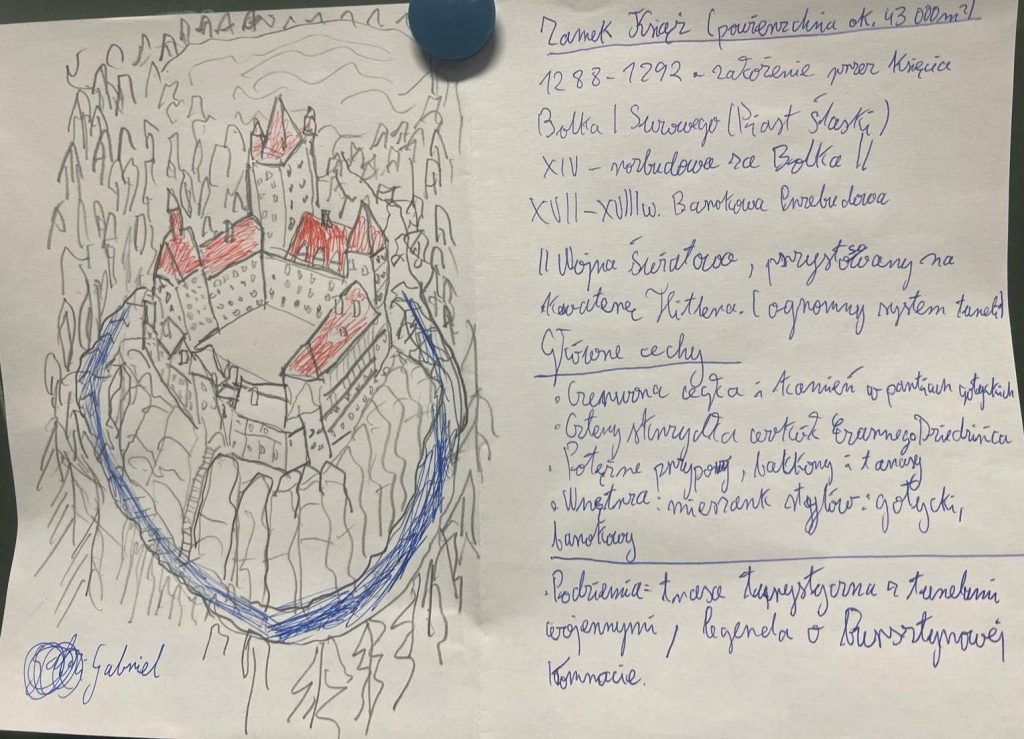 Zamek Książ (powierzchnia ok. 43 000m²)
1288-1292 - założenie przez Księcia
Bolka I Surowego (Piast Śląski)
XIV - rozbudowa za Bolka II
XVII-XVIII w. Barokowa Przebudowa
II Wojna Światowa, przystosowany na
kwaterę Hitlera. (ogromny system tuneli)
Główne cechy
• Czerwona cegła i kamień w partiach gotyckich
• Cztery skrzydła wokół Dziedzińca
• Potężne przypory, balkony i tarasy
• Wnętrza: mieszank stylów: gotycki,
barokowy
• Podziemia = trasa turystyczna z tunelami
wojennymi, legenda o Bursztynowej
Komnacie.
Gabriel